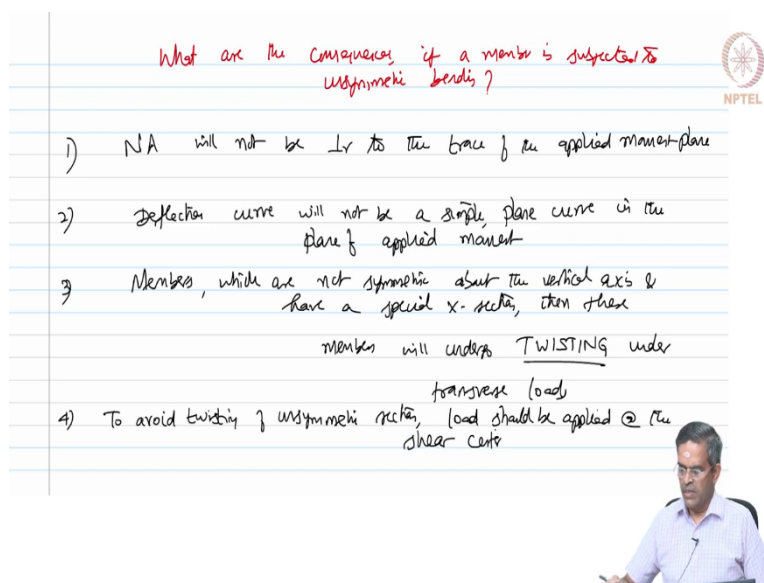 What are the consequences, if a member is subjected to
unsymmetric bending?
NPTEL
1) NA will not be ⊥r to the trace of the applied moment plane
2) Deflection curve will not be a simple, plane curve in the
plane of applied moment
3) Members, which are not symmetric about the vertical axis &
have a special x-section, then these
members will undergo TWISTING under
transverse loads
4) To avoid twisting of unsymmetric section, load should be applied @ the
shear center